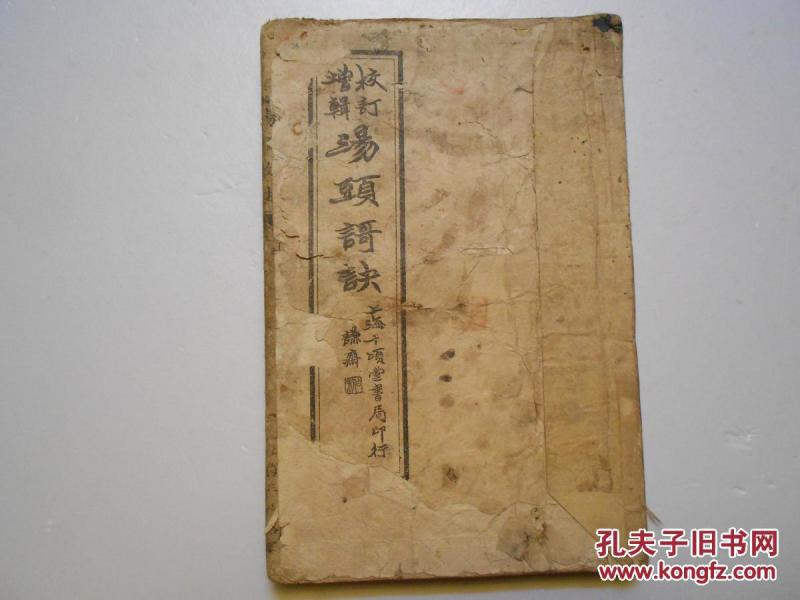 校訂
增輯
湯頭謌訣
上海千頃堂書局印行
謙齋
孔夫子旧书网
www.kongfz.com